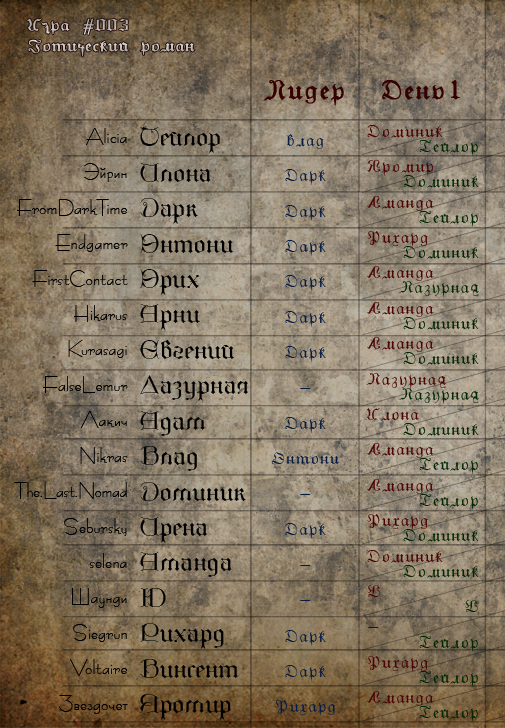 Игра #003
Готический роман
Лидер День 1
Alicia Тейлор Влад Доминик
Тейлор
Эйрин Илона Дарк Яромир
Доминик
FromDarkTime Дарк Дарк Аманда
Тейлор
Endgamer Энтони Дарк Рихард
Доминик
FirstContact Эрих Дарк Аманда
Лазурная
Hikarus Арни Дарк Аманда
Доминик
Kurasagi Евгений Дарк Аманда
Доминик
FalseLemur Лазурная – Лазурная
Лазурная
Лакич Адам Дарк Илона
Доминик
Nikras Влад Энтони Аманда
Тейлор
The.Last.Nomad Доминик – Аманда
Тейлор
Sebursky Ирена Дарк Рихард
Доминик
selena Аманда – Доминик
Доминик
Шаунди Ю –
Siegrun Рихард Дарк –
Тейлор
Voltaire Винсент Дарк Рихард
Тейлор
Звездочет Яромир Рихард Аманда
Тейлор